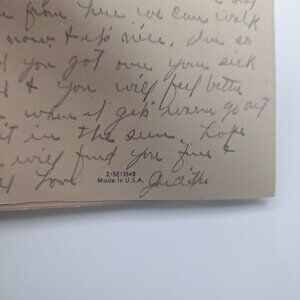 from here we can walk
now & it's nice. I'm so
you got over your sick
& you will feel better
when it gets warm go out
it in the sun, hope
will find you fine &
Love Judith
2/5E1354B
Made in U.S.A.